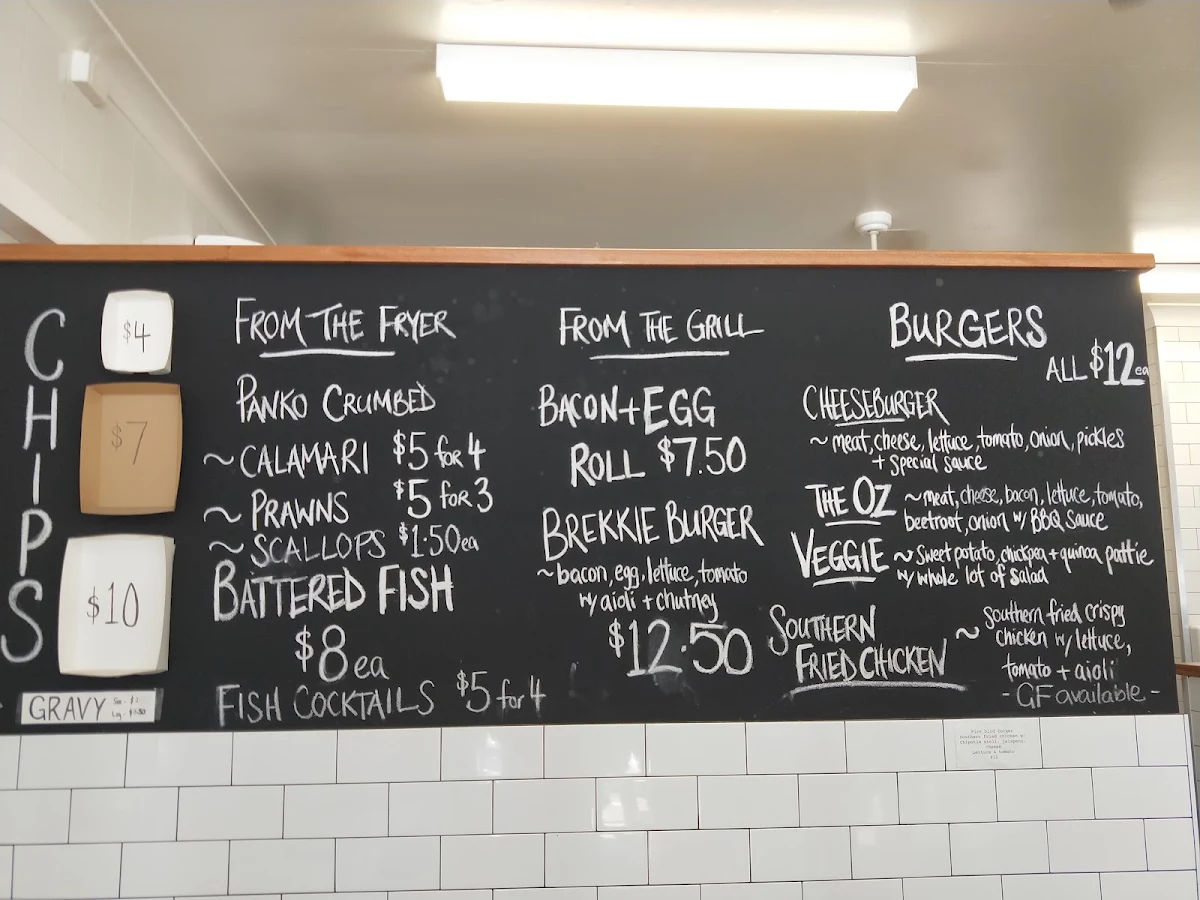 CHIPS
$4
$7
$10
GRAVY
FROM THE FRYER
PANKO CRUMBED
~ CALAMARI $5 for 4
~ PRAWNS $5 for 3
~ SCALLOPS $1.50ea
BATTERED FISH
$8 ea
FISH COCKTAILS $5 for 4
FROM THE GRILL
BACON + EGG
ROLL $7.50
BREKKIE BURGER
~ bacon, egg, lettuce, tomato
w/ aioli + chutney
$12.50
BURGERS
ALL $12 ea
CHEESEBURGER
~ meat, cheese, lettuce, tomato, onion, pickles
+ special sauce
THE OZ ~ meat, cheese, bacon, lettuce, tomato,
beetroot, onion w/ BBQ sauce
VEGGIE ~ sweet potato, chickpea + quinoa pattie
w/ whole lot of salad
SOUTHERN
FRIED CHICKEN ~
Southern fried crispy
chicken w/ lettuce,
tomato + aioli
- GF available -
Southern fried chicken w/
Chipotle aioli, jalapeno,
cheese
lettuce & tomato